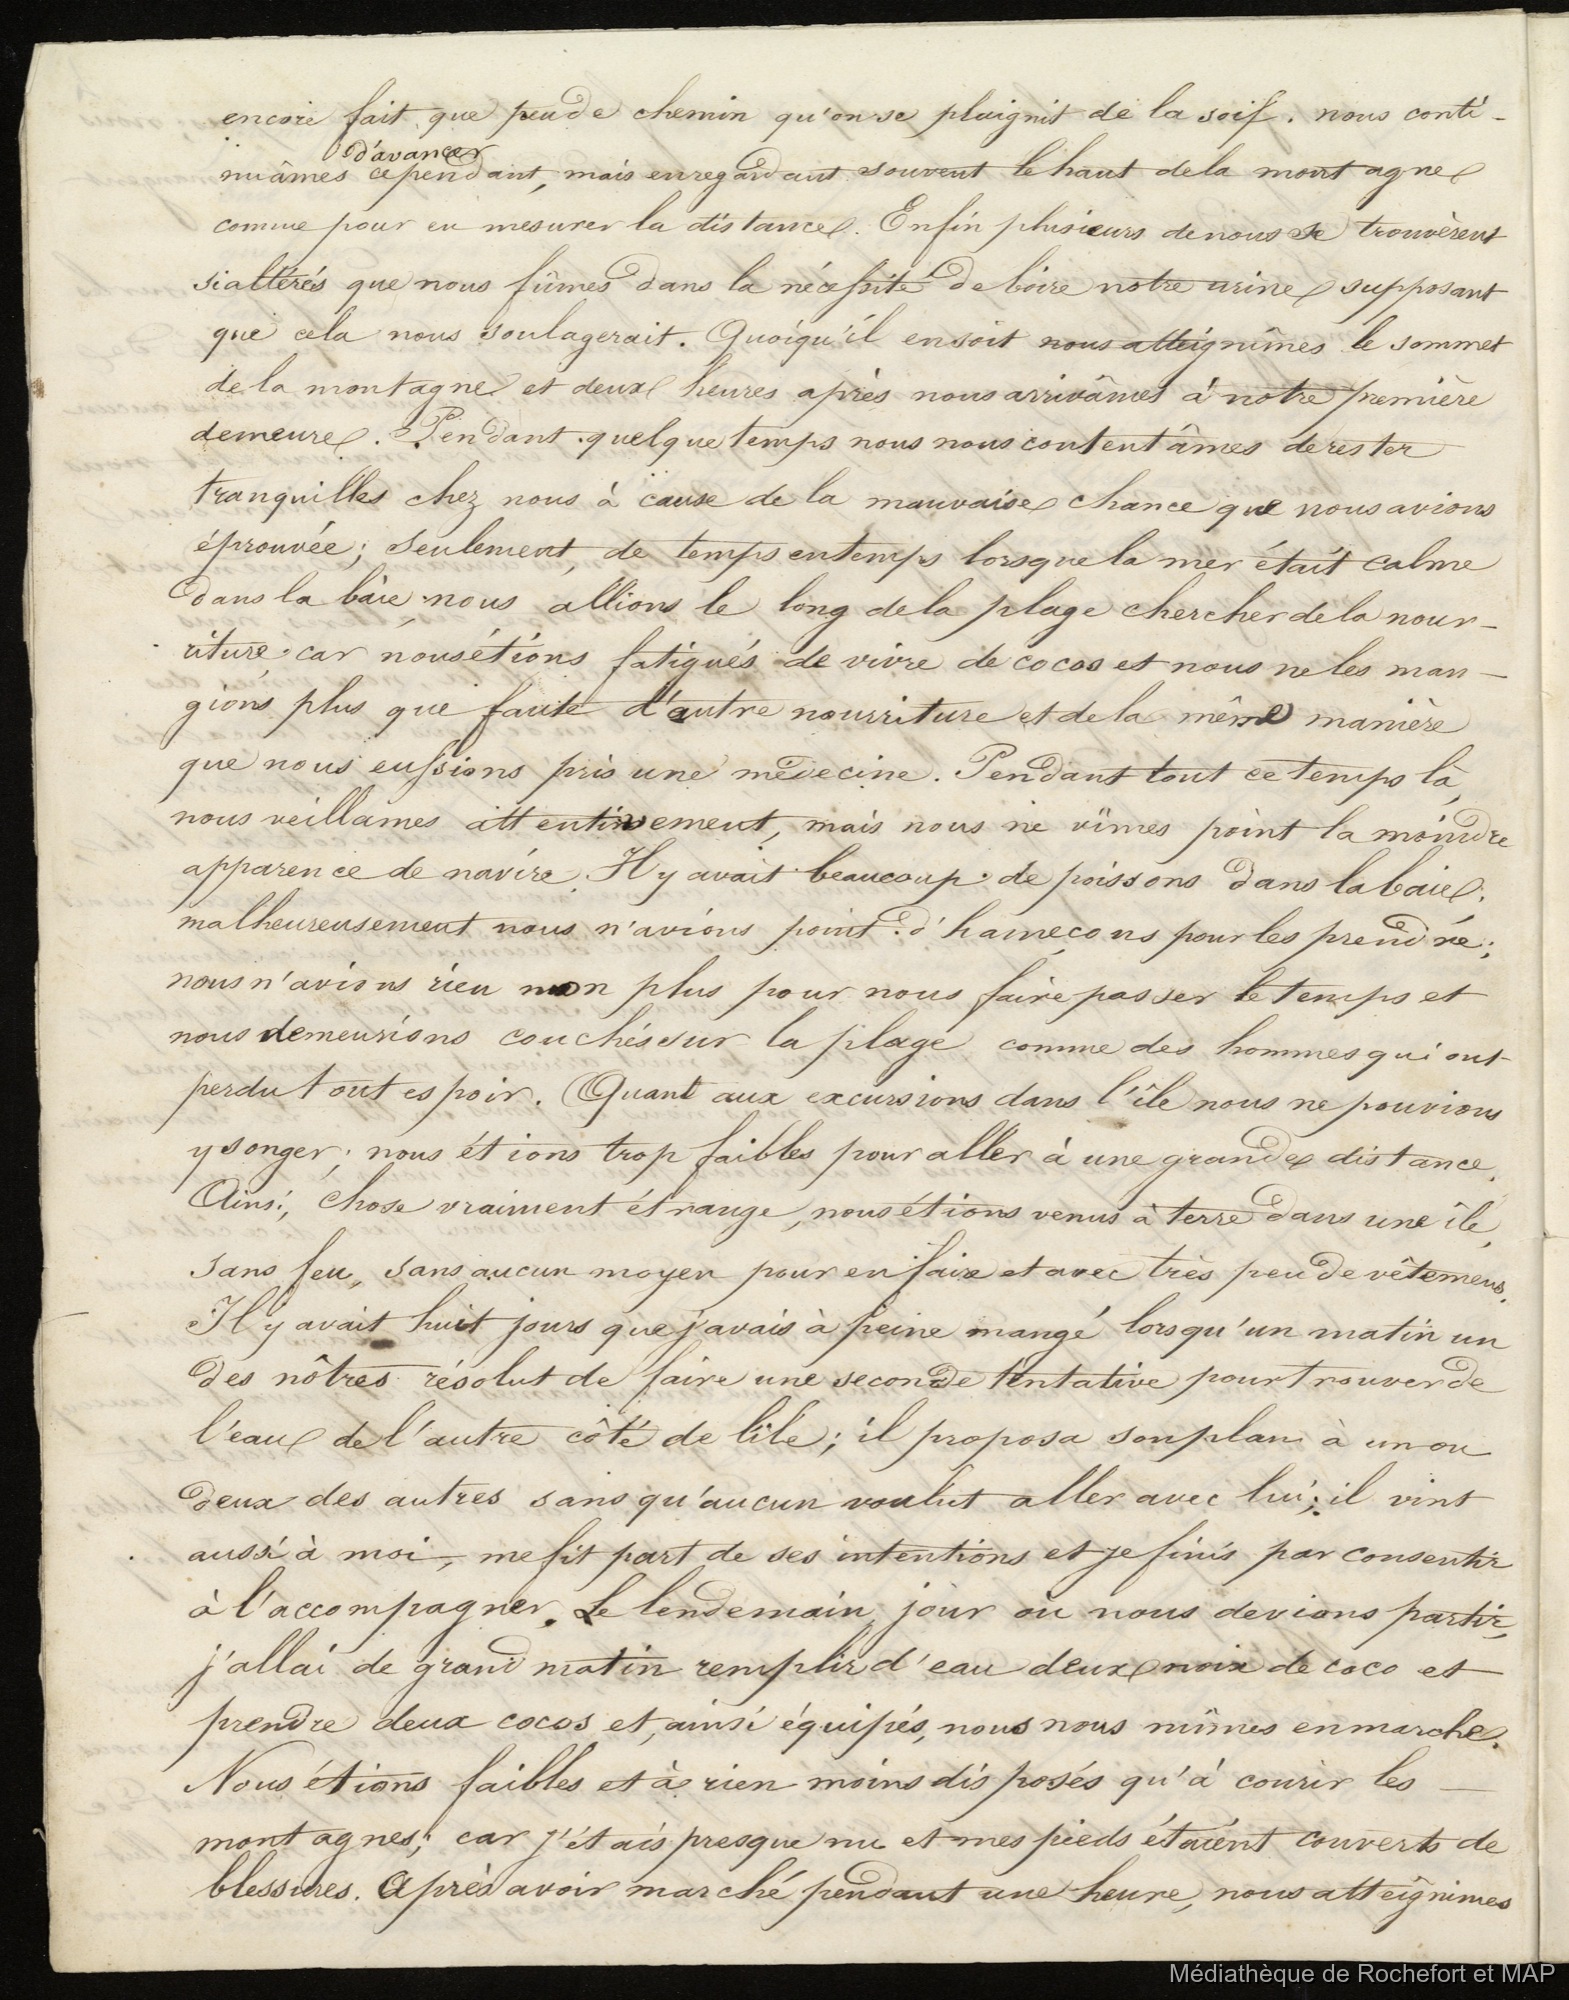 encore fait que peu de chemin qu'on se plaignit de la soif. nous conti-
d'avancer
nuâmes cependant, mais en regardant souvent le haut de la montagne
comme pour en mesurer la distance. Enfin plusieurs de nous se trouvèrent
si altérés que nous fûmes dans la nécessité de boire notre urine supposant
que cela nous soulagerait. Quoiqu'il en soit nous atteignîmes le sommet
de la montagne et deux heures après nous arrivâmes à notre première
demeure. Pendant quelque temps nous nous contentâmes de rester
tranquilles chez nous à cause de la mauvaise chance que nous avions
éprouvée; seulement, de temps en temps lorsque la mer était calme
dans la baie, nous allions le long de la plage chercher de la nour-
riture, car nous étions fatigués de vivre de cocos et nous ne les man-
gions plus que faute d'autre nourriture et de la même manière
que nous eussions pris une médecine. Pendant tout ce temps là,
nous veillames attentivement, mais nous ne vîmes point la moindre
apparence de navire. Il y avait beaucoup de poissons dans la baie.
malheureusement nous n'avions point d'hameçons pour les prendre;
nous n'avions rien non plus pour nous faire passer le temps et
nous demeurions couchés sur la plage comme des hommes qui ont
perdu tout espoir. Quant aux excursions dans l'île nous ne pouvions
y songer; nous étions trop faibles pour aller à une grande distance.
Ainsi, chose vraiment étrange, nous étions venus à terre dans une île,
sans feu, sans aucun moyen pour en faire et avec très peu de vêtemens.
Il y avait huit jours que j'avais à peine mangé lorsqu'un matin un
des nôtres résolut de faire une seconde tentative pour trouver de
l'eau de l'autre côté de l'île; il proposa son plan à un ou
deux des autres sans qu'aucun voulut aller avec lui; il vint
aussi à moi, me fit part de ses intentions et je finis par consentir
à l'accompagner. Le lendemain, jour où nous devions partir,
j'allai de grand matin remplir d'eau deux noix de coco et
prendre deux cocos et, ainsi équipés, nous nous mîmes en marche.
Nous étions faibles et à rien moins disposés qu'à courir les
montagnes; car j'étais presque nu et mes pieds étaient couverts de
blessures. Après avoir marché pendant une heure, nous atteignimes
Médiathèque de Rochefort et MAP